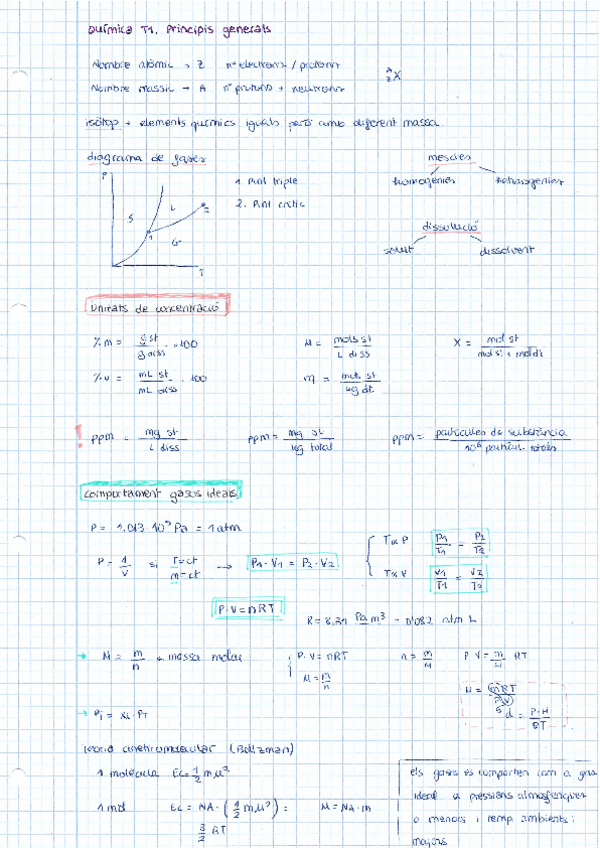 Química T1. Principis generals
Nombre atòmic → Z nº electrons / protons
Nombre màssic → A nº protons + neutrons
A Z X
isòtop → elements químics iguals però amb diferent massa
diagrama de fases
P
S
L
G
1
2
T
1. Punt triple
2. Punt crític
mescles
homogènies heterogènies
dissolució
solut dissolvent
Unitats de concentració
% m = g st / g diss · 100
M = mols st / L diss
X = mol st / mol st + mol dt
% v = mL st / mL diss · 100
m = mols st / kg dt
! ppm = mg st / L diss
ppm = mg st / kg total
ppm = partícules de substància / 10⁶ partícul. totals
comportament gasos ideals
P = 1.013 · 10⁵ Pa = 1 atm
P = 1/V si T=ct m=ct → P1 · V1 = P2 · V2
T ∝ P P1/T1 = P2/T2
T ∝ V V1/T1 = V2/T2
P · V = nRT
R = 8.31 Pa m³ = 0'082 atm L
→ M = m/n massa molar
P. V = nRT
M = m/n
n = m/M
P V = m/M RT
M = mRT / PV
d = P·M / RT
→ Pi = xi · PT
teoria (Boltzman)
1 molècula Ec = 1/2 mu²
1 mol Ec = NA · (1/2 mu²) = M = NA · m
3/2 RT
els gasos es comporten com a gas
ideal a pressions atmosfèriques
o menors i temp. ambients i
majors